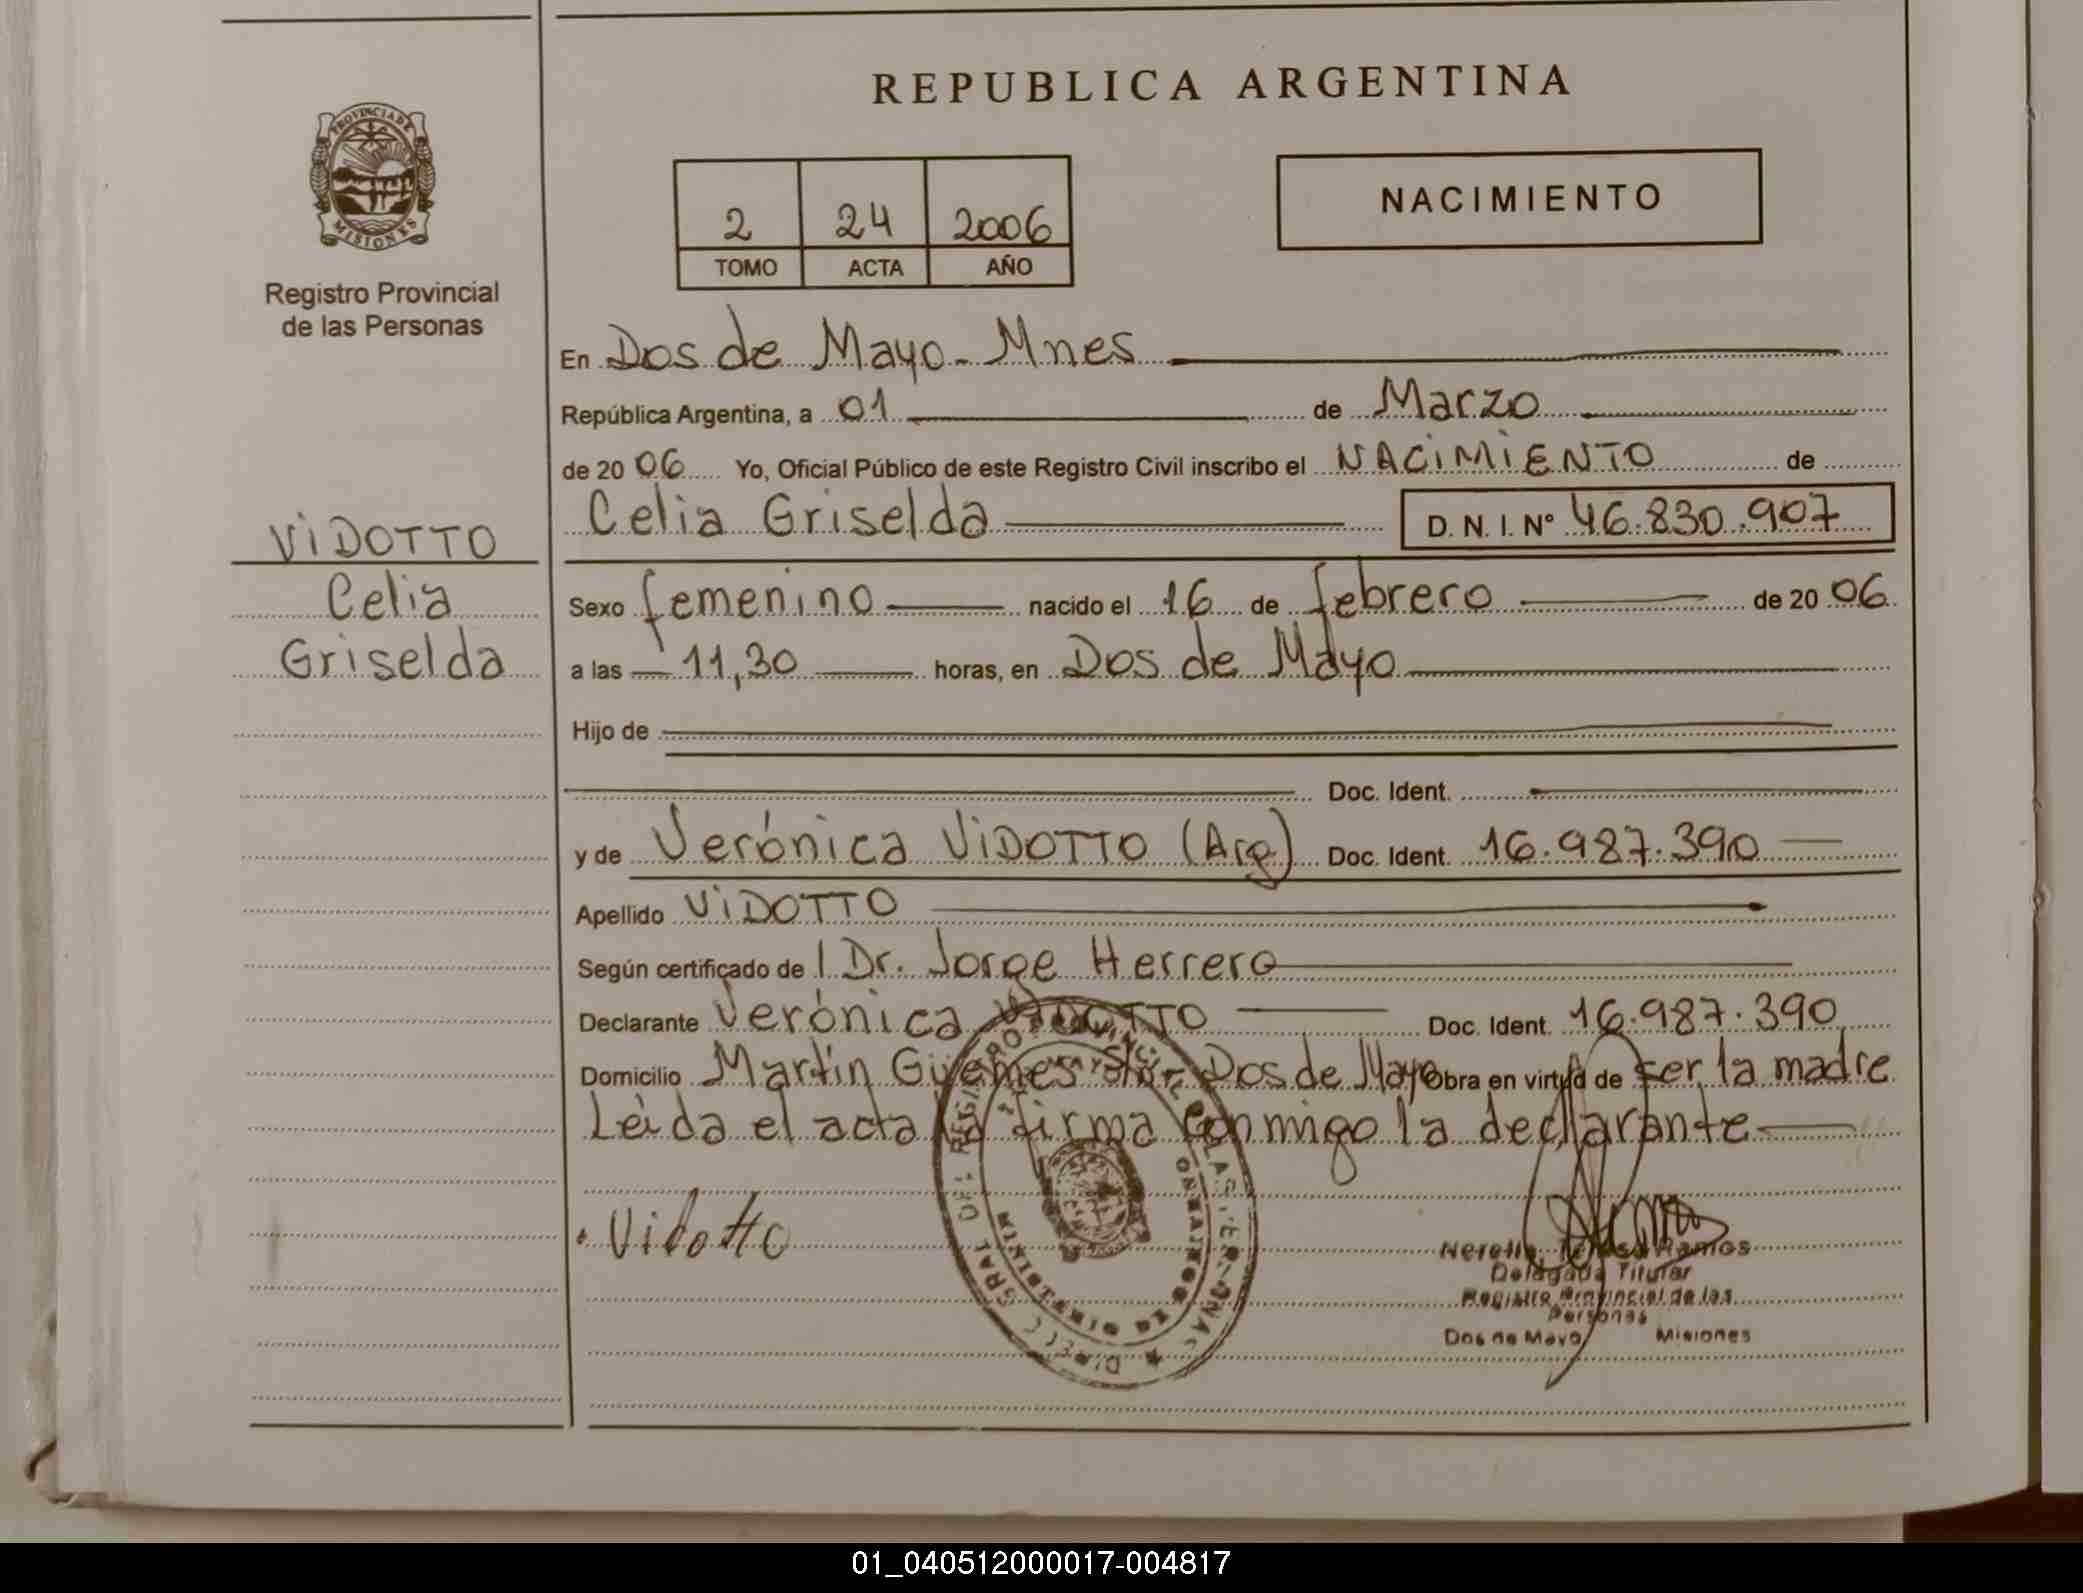 REPUBLICA ARGENTINA
PROVINCIA DE MISIONES
Registro Provincial
de las Personas
2 24 2006
TOMO ACTA AÑO
NACIMIENTO
En Dos de Mayo - Mnes
República Argentina, a 01 de Marzo
de 20 06 Yo, Oficial Público de este Registro Civil inscribo el NACiMiENTO de
Celia Griselda D. N. I. N° 46.830.907
ViDOTTO
Celia
Griselda
Sexo femenino nacido el 16 de febrero de 20 06
a las 11,30 horas, en Dos de Mayo
Hijo de
Doc. Ident.
y de Verónica ViDOTTO (Arg) Doc. Ident. 16.987.390
Apellido ViDOTTO
Según certificado de l Dr. Jorge Herrero
Declarante Verónica ViDOTTO Doc. Ident. 16.987.390
Domicilio Martín Güemes Dos de Mayo Obra en virtud de ser la madre
Leída el acta la firma conmigo la declarante
Vidotto
Teresa Ramos
Delegada Titular
Registro Provincial de las
Personas
Dos de Mayo Misiones
01_040512000017-004817